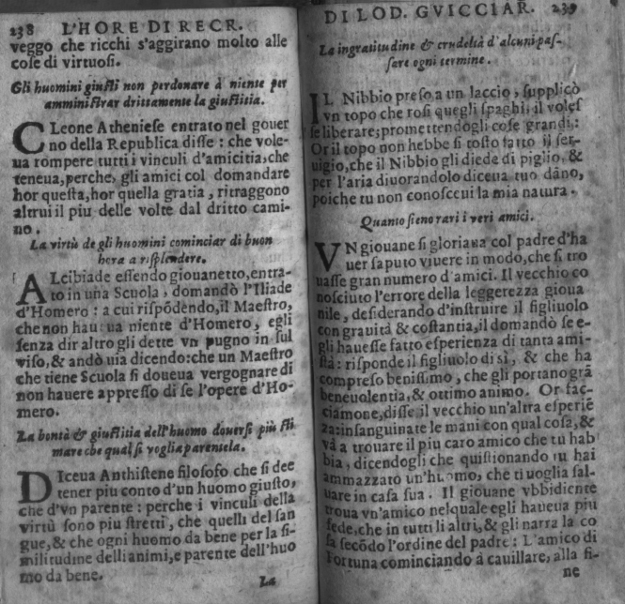 238 L'HORE DI RECR.
veggo che ricchi s'aggirano molto alle
cose di virtuosi.
Gli huomini giusti non perdonare à niente per
amministrar drittamente la giustitia.
CLeone Atheniese entrato nel gouer
no della Republica disse: che vole-
ua rompere tutti i vinculi d'amicitia, che
teneua, perche, gli amici col domandare
hor questa, hor quella gratia, ritraggono
altrui il piu delle volte dal dritto cami-
no.
La virtù de gli huomini cominciar di buon
hora a risplendere.
ALcibiade essendo giouanetto, entra-
to in una Scuola, domandò l'Iliade
d'Homero: a cui rispõdẽdo, il Maestro,
che non haueua niente d'Homero, egli
senza dir altro gli dette vn pugno in sul
viso, & andò uia dicendo: che un Maestro
che tiene Scuola si doueua vergognare di
non hauere appresso di se l'opere d'Ho-
mero.
La bontà & giustitia dell'huomo douersi più sti
mare che qual si voglia parentela.
DIceua Anthistene filosofo che si dee
tener piu conto d'un huomo giusto,
che d'vn parente: perche i vinculi della
virtù sono piu stretti, che quelli del san
gue, & che ogni huomo da bene per la si-
militudine delli animi, e parente dell'huo
mo da bene.
La
DI LOD. GVICCIAR. 239
La ingratitudine & crudeltà d'alcuni pas-
sare ogni termine.
IL Nibbio preso a un laccio, supplicò
vn topo che rosi quegli spaghi, il voless
se liberare; promettendogli cose grandi:
Or il topo non hebbe si tosto fatto il ser-
uigio, che il Nibbio gli diede di piglio, &
per l'aria diuorandolo diceua tuo dãno,
poiche tu non conosceui la mia natura.
Quanto sieno rari i veri amici.
VN giouane si gloriaua col padre d'ha
uer saputo viuere in modo, che si tro
uasse gran numero d'amici. Il vecchio co
nosciuto l'errore della leggerezza gioua
nile, desiderando d'instruire il figliuolo
con grauità & costantia, il domandò se e-
gli hauesse fatto esperienza di tanta ami-
stà: risponde il figliuolo di sì, & che ha
compreso benissimo, che gli portano grã
beneuolentia, & ottimo animo. Or fac-
ciamone, disse il vecchio un'altra esperiẽ
za: insanguinate le mani con qual cosa, &
và a trouare il piu caro amico che tu hab
bia, dicendogli che quistionando tu hai
ammazzato un'huomo, che ti uoglia sal-
uare in casa sua. Il giouane vbbidiente
troua vn'amico nelquale egli haueua piu
fede, che in tutti li altri, & gli narra la co
sa secõdo l'ordine del padre: L'amico di
Fortuna cominciando à cauillare, alla fi-
ne